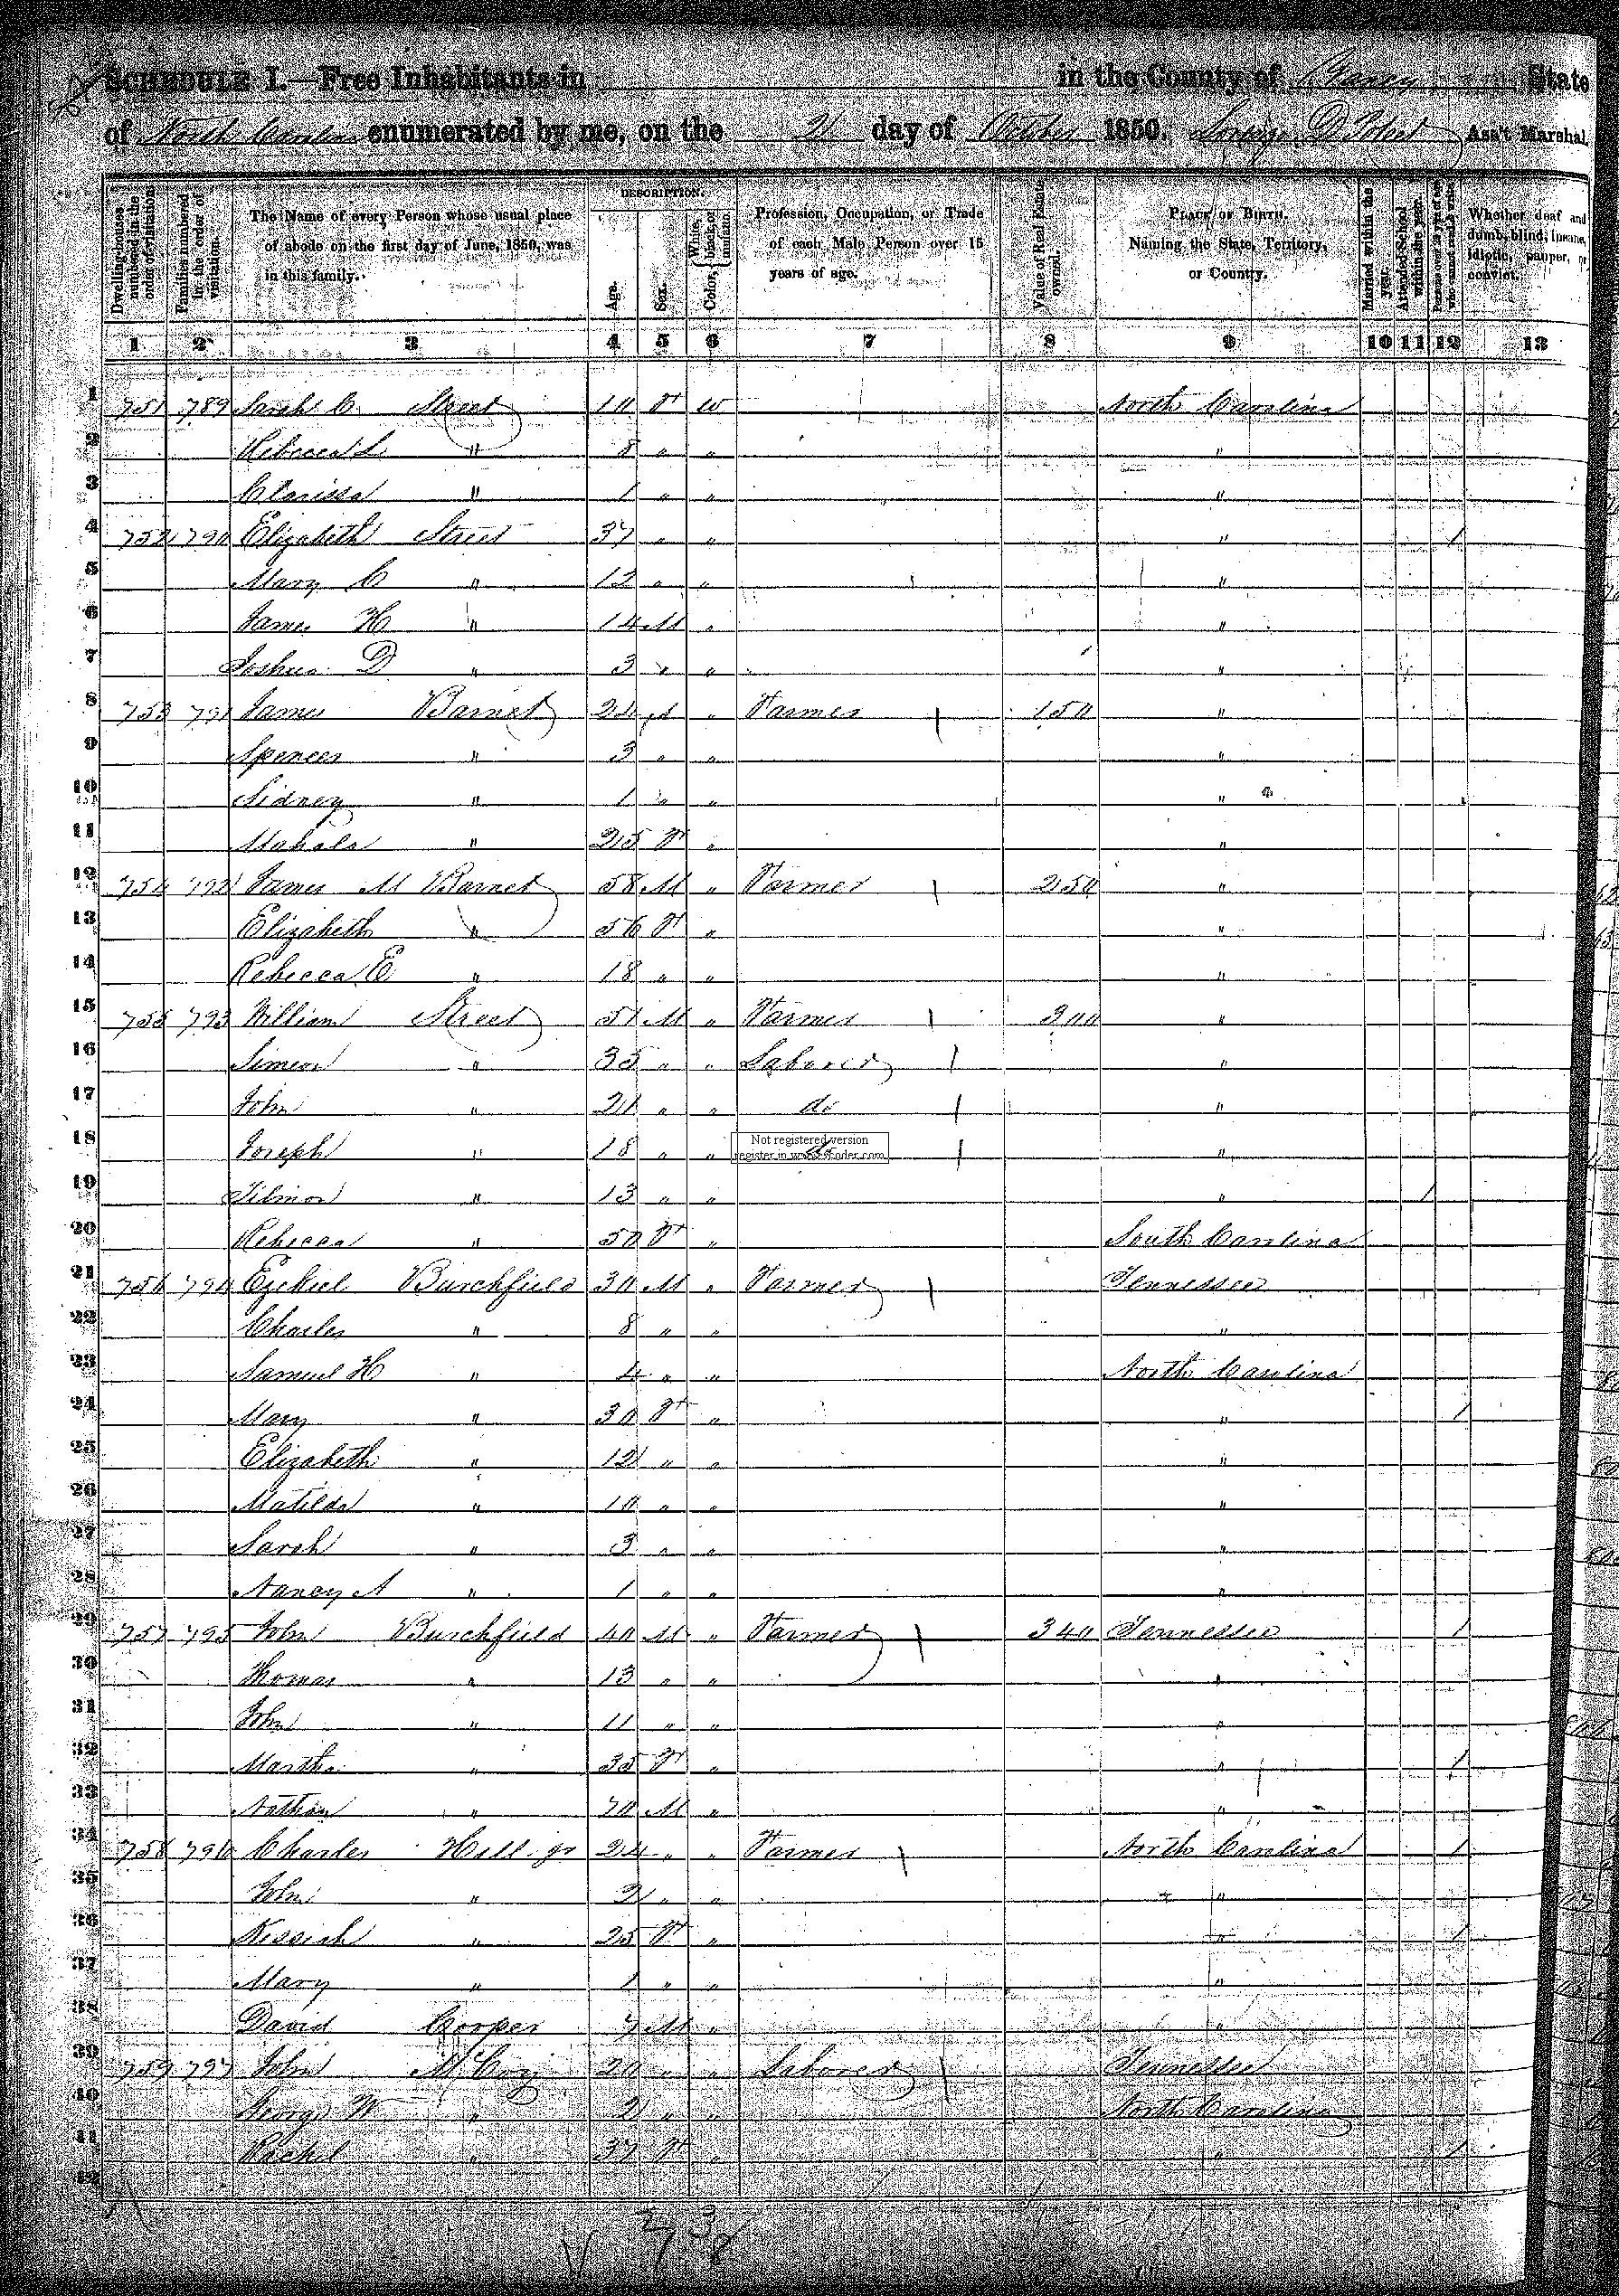 SCHEDULE I.—Free Inhabitants in in the County of Yancy State
of North Carolina enumerated by me, on the 21 day of October 1850. Ass't Marshal.
Dwelling-houses numbered in the order of visitation.
Families numbered in the order of visitation.
The Name of every Person whose usual place of abode on the first day of June, 1850, was in this family.
DESCRIPTION.
Age.
Sex.
Color, White, black, or mulatto.
Profession, Occupation, or Trade of each Male Person over 15 years of age.
Value of Real Estate owned.
PLACE OF BIRTH. Naming the State, Territory, or Country.
Married within the year.
Attended School within the year.
Persons over 20 y'rs of age who cannot read & write.
Whether deaf and dumb, blind, insane, idiotic, pauper, or convict.
1 2 3 4 5 6 7 8 9 10 11 12 13
1 751 789 Sarah C. Street 10 F W North Carolina
2 Rebecca L " 8 " " "
3 Clarissa " 1 " " "
4 752 790 Elizabeth Street 37 " " " /
5 Mary C " 12 " " "
6 James H " 14 M " "
7 Joshua D " 3 " " "
8 753 791 James Barnet 24 M " Farmer 150 "
9 Spencer " 3 " " "
10 Sidney " 1 " " "
11 Mahala " 25 F " "
12 754 792 James M Barnet 58 M " Farmer 250 "
13 Elizabeth " 56 F " "
14 Rebecca E " 18 " " "
15 755 793 William Street 51 M " Farmer 300 "
16 Simeon " 35 " " Laborer "
17 John " 21 " " do "
18 Joseph " 18 " " do "
Not registered version
19 Tilmon " 13 " " " /
20 Rebecca " 50 F " South Carolina
21 756 794 Ezekiel Burchfield 30 M " Farmer Tennessee
22 Charles " 8 " " "
23 Samuel H " 4 " " North Carolina
24 Mary " 30 F " " /
25 Elizabeth " 12 " " "
26 Matilda " 10 " " "
27 Sarah " 3 " " "
28 Nancy A " 1 " " "
29 757 795 John Burchfield 40 M " Farmer 340 Tennessee /
30 Thomas " 13 " " "
31 John " 11 " " "
32 Martha " 35 F " " /
33 Nathan " 70 M " "
34 758 796 Charles Hill jr 24 " " Farmer North Carolina /
35 John " 2 " " "
36 Kessiah " 25 F " " /
37 Mary " 1 " " "
38 David Cooper 7 M " "
39 759 797 John McCoy 20 " " Laborer Tennessee
40 George W " 2 " " North Carolina
41 Rachel " 37 F " " /
42